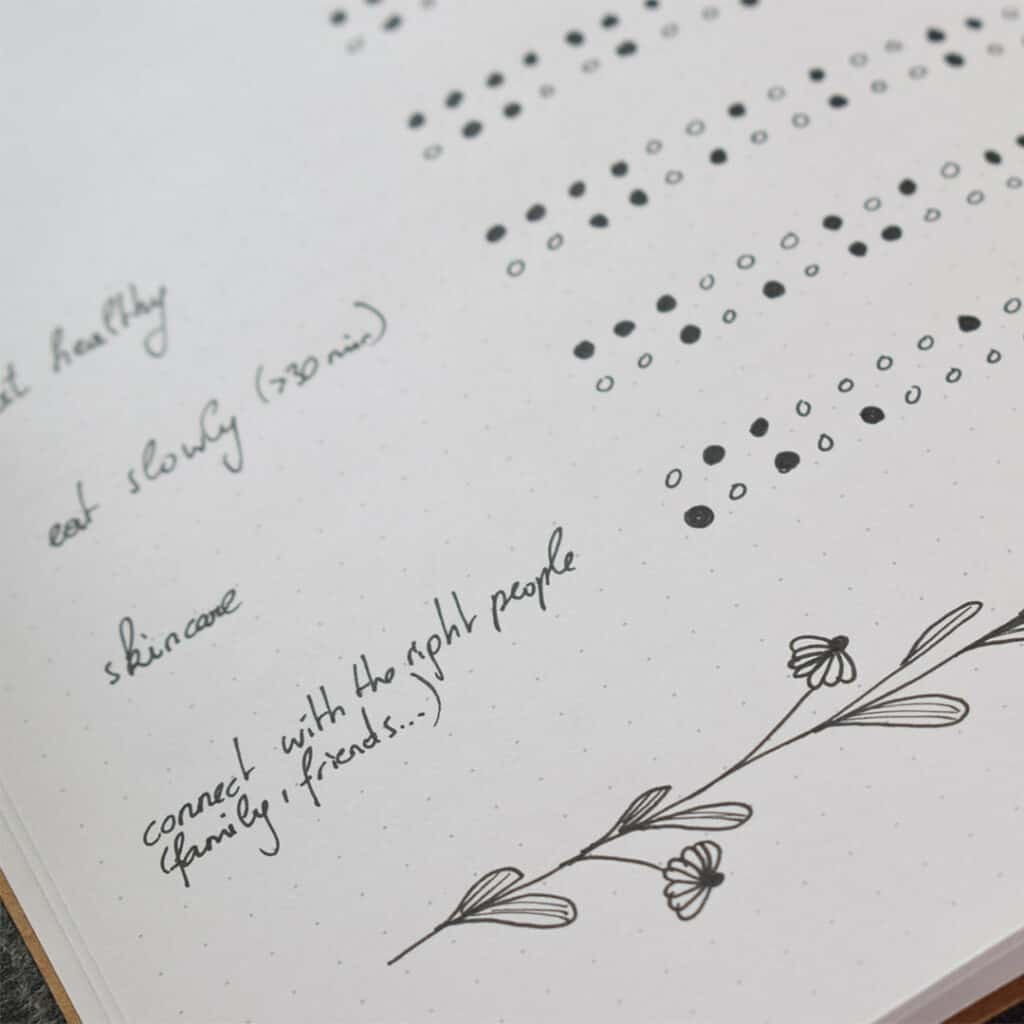 healthy
eat slowly (>30 min)
skincare
connect with the right people
(family, friends...)